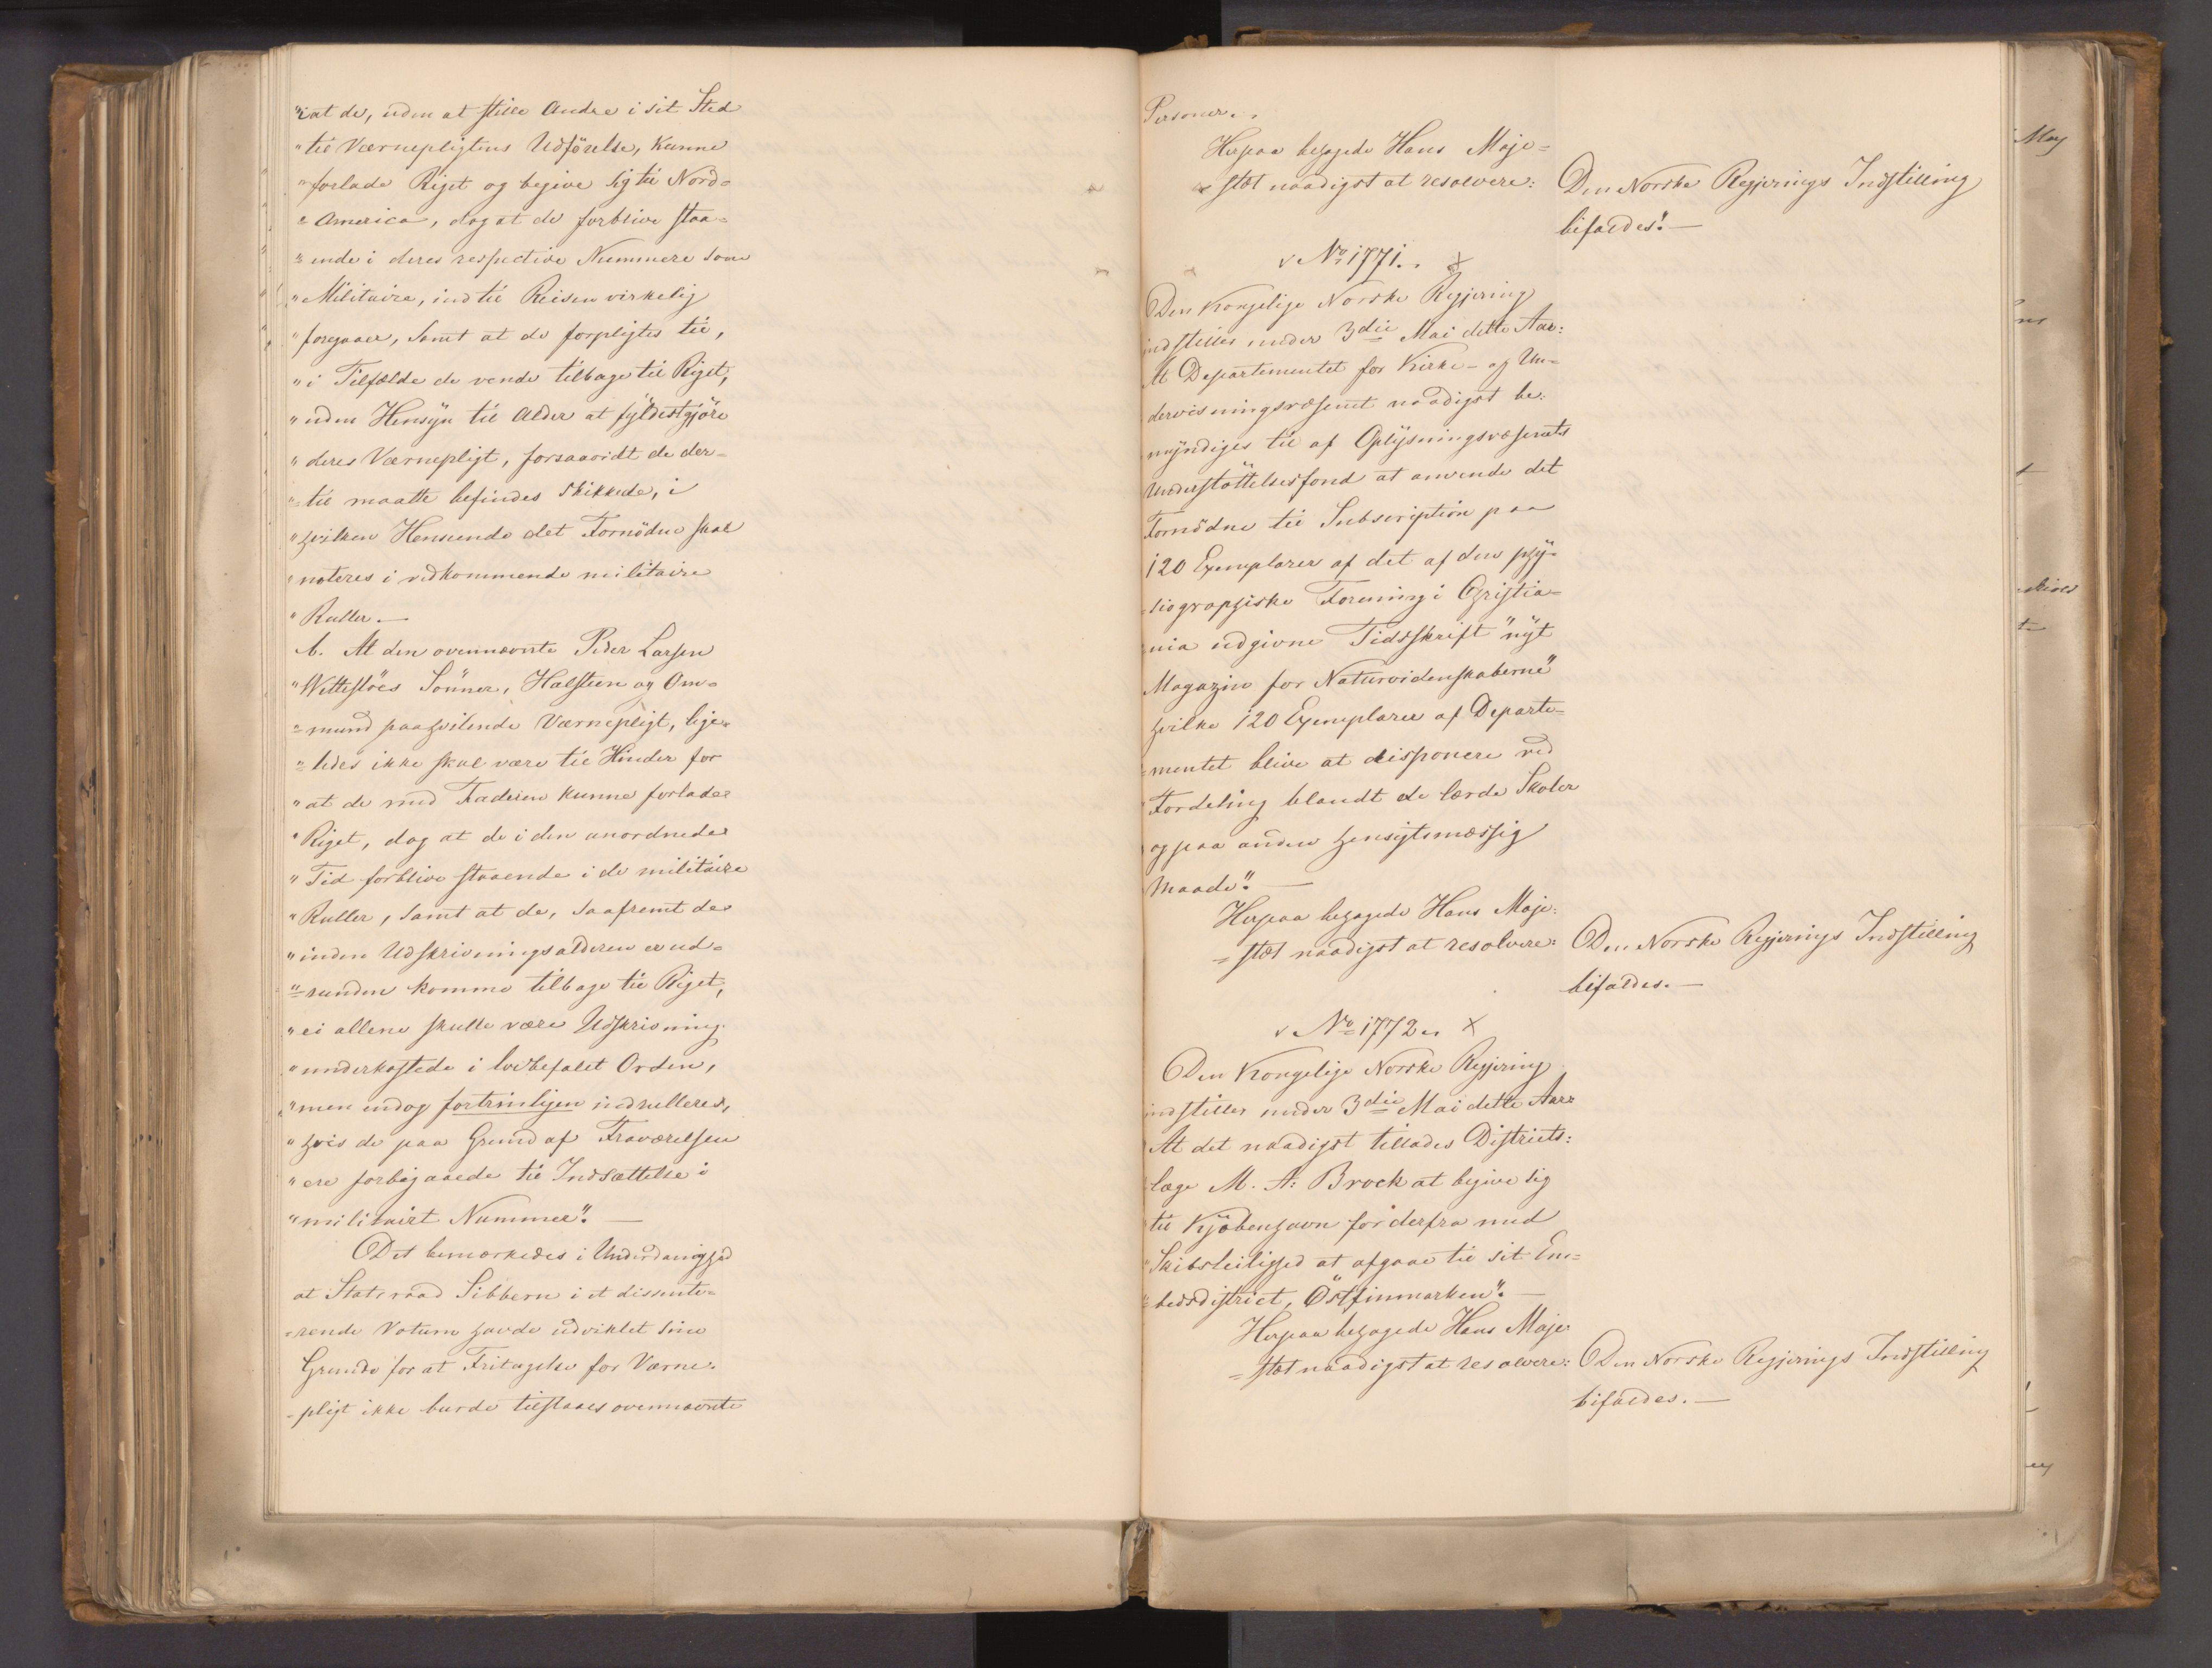 "at de, uden at stille Andre i sit Sted
"til Værnepligtens Udførelse, kunne
"forlade Riget og begive sig til Nord=
"America, dog at de forblive staa=
"ende i deres respective Nummere som
"Militaire, indtil Reisen virkelig
"foregaaer, samt at de forpligtes til,
"i Tilfælde de vende tilbage til Riget,
"uden Hensyn til Alder at fyldestgjöre
"deres Værnepligt, forsaavidt de der=
"til maatte befindes skikkede, i
"hvilken Henseende det Fornödne skal
"noteres i vedkommende militaire
"Ruller.—
b. At den ovennævnte Peder Larsen
"Wettestöes Sönner, Halsteen og Om=
"mund paahvilende Værnepligt, lige=
"ledes ikke skal være til Hinder for
"at de med Faderen kunne forlade
"Riget, dog at de i den anordnede
"Tid forblive staaende i de militaire
"Ruller, samt at de, saafremt de
"inden Udskrivningsalderen er ud=
"runden komme tilbage til Riget,
"ei allene skulle være Udskrivning
"underkastede i lovbefalet Orden,
"men endog fortrinligen indrulleres,
"hvis de paa Grund af Fraværelsen
"ere forbigaaede til Indsættelse i
"militairt Nummer". —
Det bemærkedes i Underdanighed
at Statsraad Sibbern i et dissente=
=rende Votum havde udviklet sine
Grunde for at Fritagelse for Værne=
=pligt ikke burde tilstaaes ovennævnte
Personer.
Herpaa behagede Hans Maje=
=stæt naadigst at resolvere:
Den Norske Regjerings Indstilling
bifaldes".—
No 1771. x
Den Kongelige Norske Regjering
indstiller under 3die Mai dette Aar:
At Departementet for Kirke- og Un=
dervisningsvæsenet naadigst be=
myndiges til af Oplysningsvæsenets
Understöttelsesfond at anvende det
Fornödne til Subscription paa
120 Exemplarer af det af den phy=
siographiske Forening i Christia=
nia udgivne Tidsskrift "nyt
Magazin for Naturvidenskaberne"
hvilke 120 Exemplarer af Departe=
=mentet blive at disponere ved
Fordeling blandt de lærde Skoler
og paa anden hensigtsmæssig
Maade". —
Herpaa behagede Hans Maje=
=stæt naadigst at resolvere:
Den Norske Regjerings Indstilling
bifaldes.—
No 1772. x
Den Kongelige Norske Regjering
indstiller under 3die Mai dette Aar:
At det naadigst tillades Districts=
læge M. A. Brock at begive sig
til Kjöbenhavn for derfra med
"Skibsleilighed at afgaae til sit Em=
"bedsdistrict, Östfinmarken". —
Herpaa behagede Hans Maje=
=stæt naadigst at resolvere:
Den Norske Regjerings Indstilling
bifaldes.—